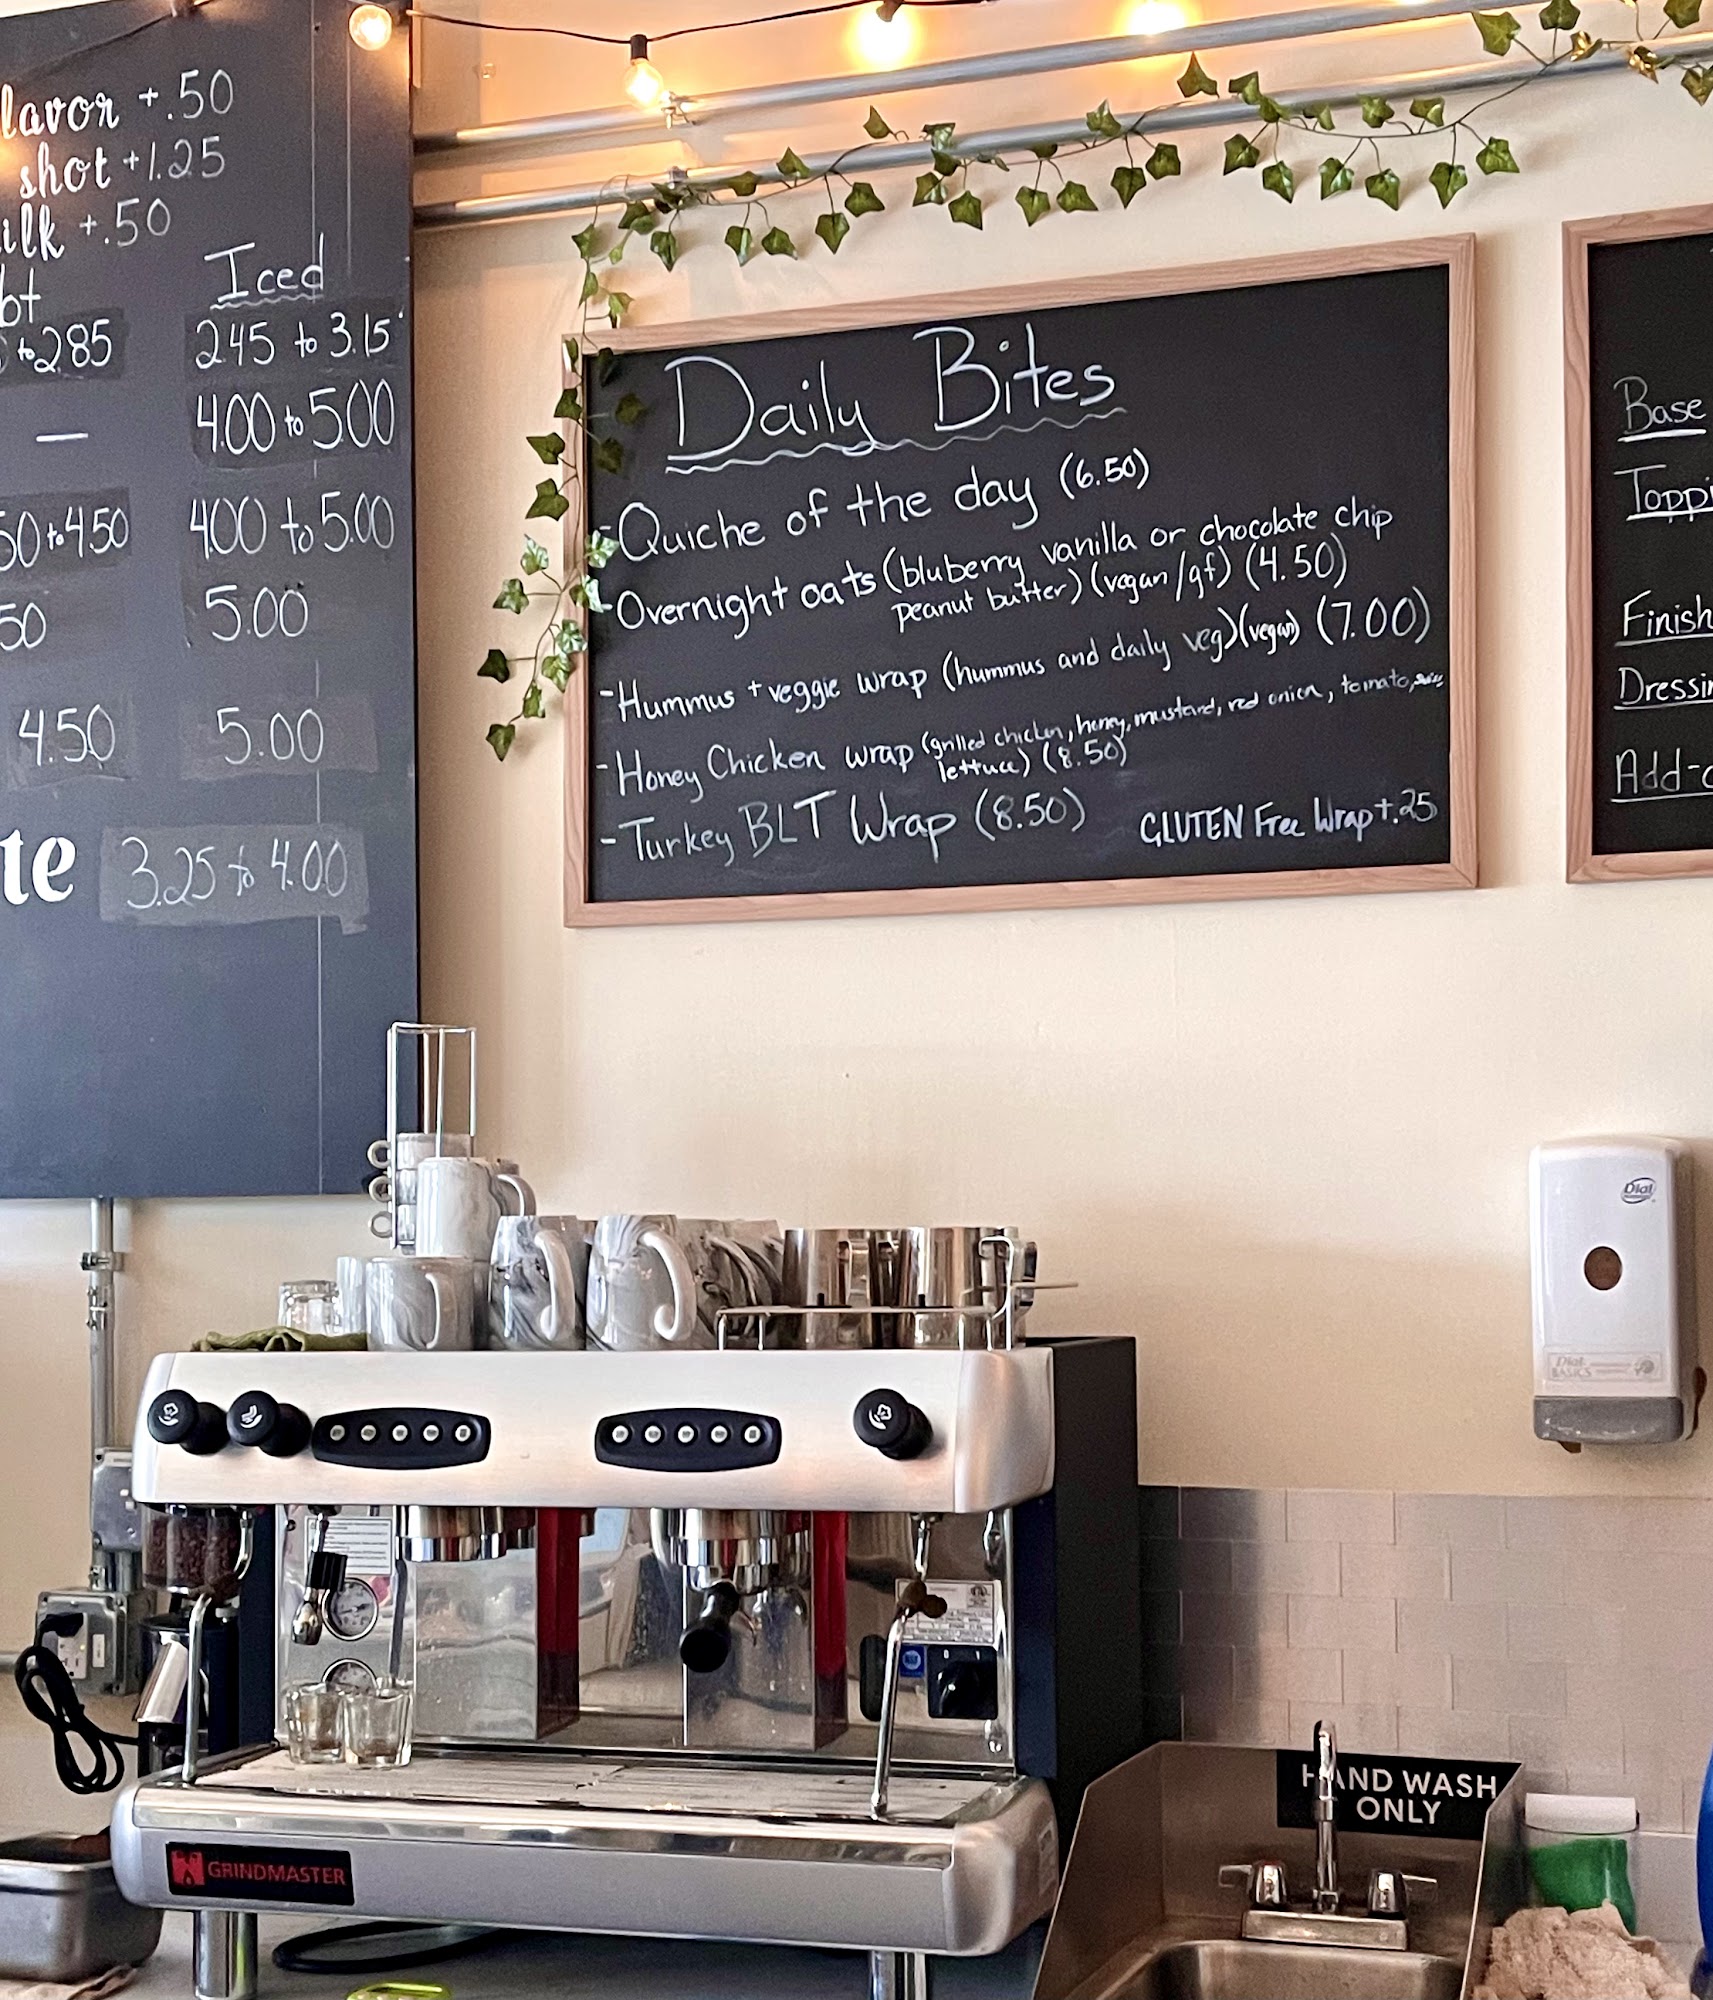 lavor +.50
shot +1.25
ilk +.50
ot
Iced
to 2.85
2.45 to 3.15
—
4.00 to 5.00
50 to 4.50
4.00 to 5.00
50
5.00
4.50
5.00
te
3.25 to 4.00
Daily Bites
- Quiche of the day (6.50)
- Overnight oats (bluberry vanilla or chocolate chip
peanut butter) (vegan/gf) (4.50)
- Hummus + veggie wrap (hummus and daily veg) (vegan) (7.00)
- Honey Chicken wrap (grilled chicken, honey, mustard, red onion, tomato,
lettuce) (8.50)
- Turkey BLT Wrap (8.50)
GLUTEN Free Wrap +.25
Base
Toppi
Finish
Dressin
Add-o
Dial
Dial
BASICS
GRINDMASTER
HAND WASH
ONLY